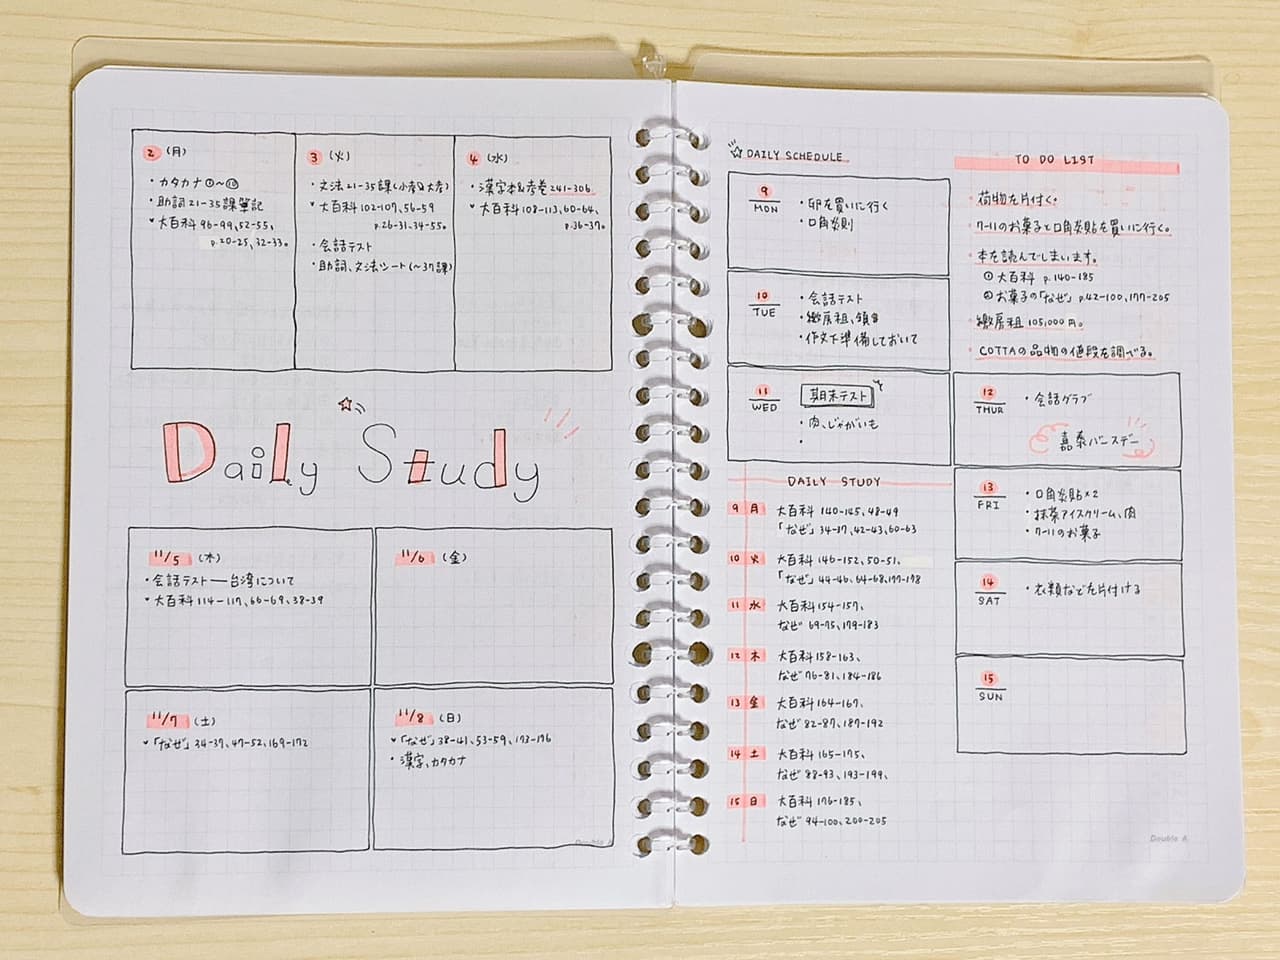 2 (月)
・カタカナ①~⑩
・助詞21-35課筆記
・大百科96-99、52-55、
p.20-25、32-33。
3 (火)
・文法21-35課(小考&大考)
・大百科102-107、56-59
p.26-31、34-55。
・会話テスト
・助詞、文法シート(~37課)
4 (水)
・漢字本&考卷241-306
・大百科108-113、60-64、
p.36-37。
Daily Study
11/5 (木)
・会話テスト—台湾について
・大百科114-117、66-69、38-39
11/6 (金)
11/7 (土)
・「なぜ」34-37、47-52、169-172
11/8 (日)
・「なぜ」38-41、53-59、173-176
・漢字、カタカナ
Double A
DAILY SCHEDULE
9 MON
・卵を買いに行く
・口角炎則
10 TUE
・会話テスト
・繳房租、領
・作文下準備しておいて
11 WED
期末テスト
・肉、じゃがいも
・
DAILY STUDY
9 月 大百科140-145、48-49
「なぜ」34-37、42-43、60-63
10 火 大百科146-152、50-51、
「なぜ」44-46、64-68、177-178
11 水 大百科154-157、
なぜ 69-75、179-183
12 木 大百科158-163、
なぜ 76-81、184-186
13 金 大百科164-167、
なぜ 82-87、187-192
14 土 大百科165-175、
なぜ 88-93、193-199、
15 日 大百科176-185、
なぜ 94-100、200-205
TO DO LIST
・荷物を片付く。
・7-11のお菓子と口角炎貼を買いに行く。
・本を読んでしまいます。
①大百科 p.140-185
②お菓子の「なぜ」p.42-100、177-205
・繳房租 105,000円。
・COTTAの品物の値段を調べる。
12 THUR
・会話クラブ
嘉泰バースデー
13 FRI
・口角炎貼×2
・抹茶アイスクリーム、肉
・7-11のお菓子
14 SAT
・衣類などを片付ける
15 SUN
Double A